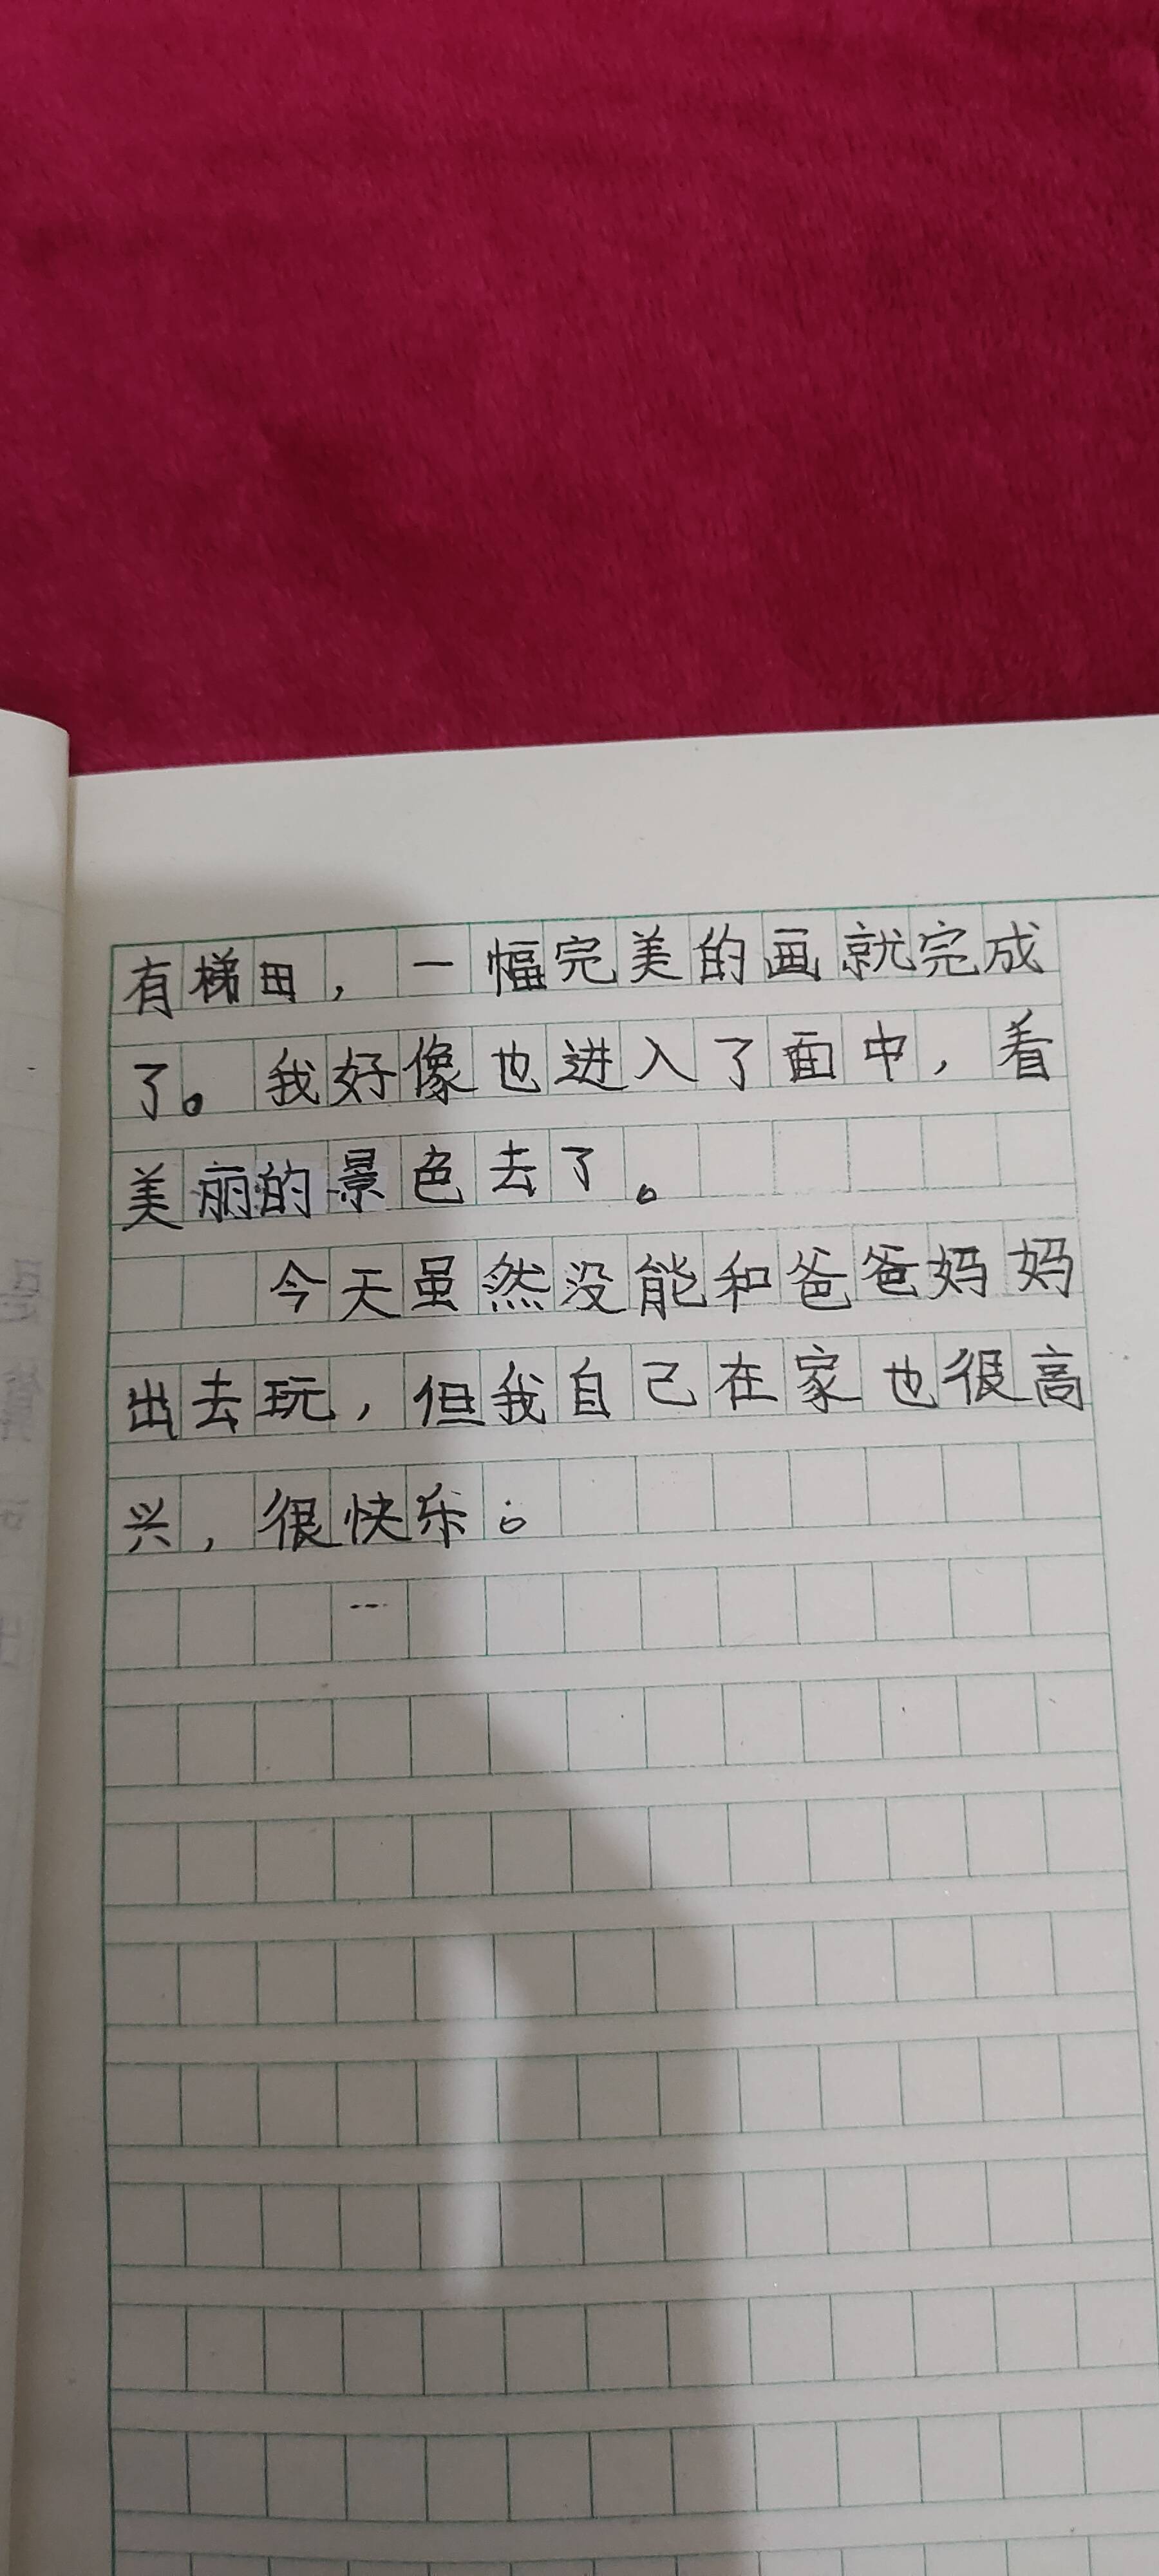 有梯田，一幅完美的画就完成
了。我好像也进入了面中，看
美丽的景色去了。
今天虽然没能和爸爸妈妈
出去玩，但我自己在家也很高
兴，很快乐。